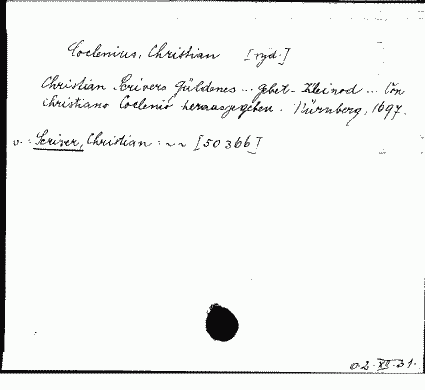 Coclenius, Christian [wyd.]
Christian Scrivers Güldnes ... Gebet-Kleinod ... Von
Christiano Coclenio herausgegeben. Nürnberg, 1697.
v.: Scriver, Christian: ~ ~ [50366]
02.XII.31.